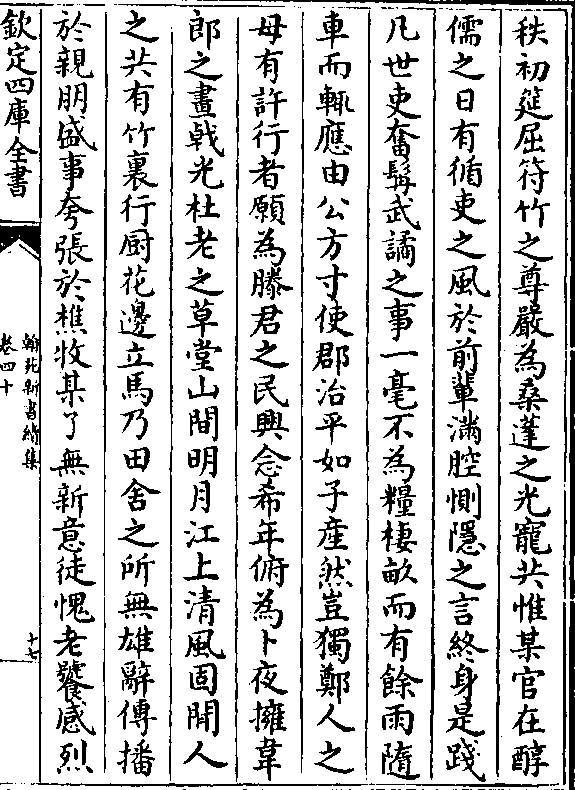 秩初筵屈符竹之尊嚴為桑蓬之光寵共惟某官在醇
儒之日有循吏之風於前輩滿腔惻隱之言終身是踐
凡世吏奮髯武譎之事一毫不為糧棲畝而有餘雨隨
車而輒應由公方寸使郡治平如子產然豈獨鄭人之
母有許行者願為滕君之民興念希年俯為卜夜擁韋
郎之畫㦸光杜老之草堂山間明月江上清風固閒人
之共有竹裏行厨花邊立馬乃田舍之所無雄辭傳播
於親朋盛事夸張於樵牧某了無新意徒愧老饕感烈
欽定四庫全書
翰苑新書續集
卷四十
十七